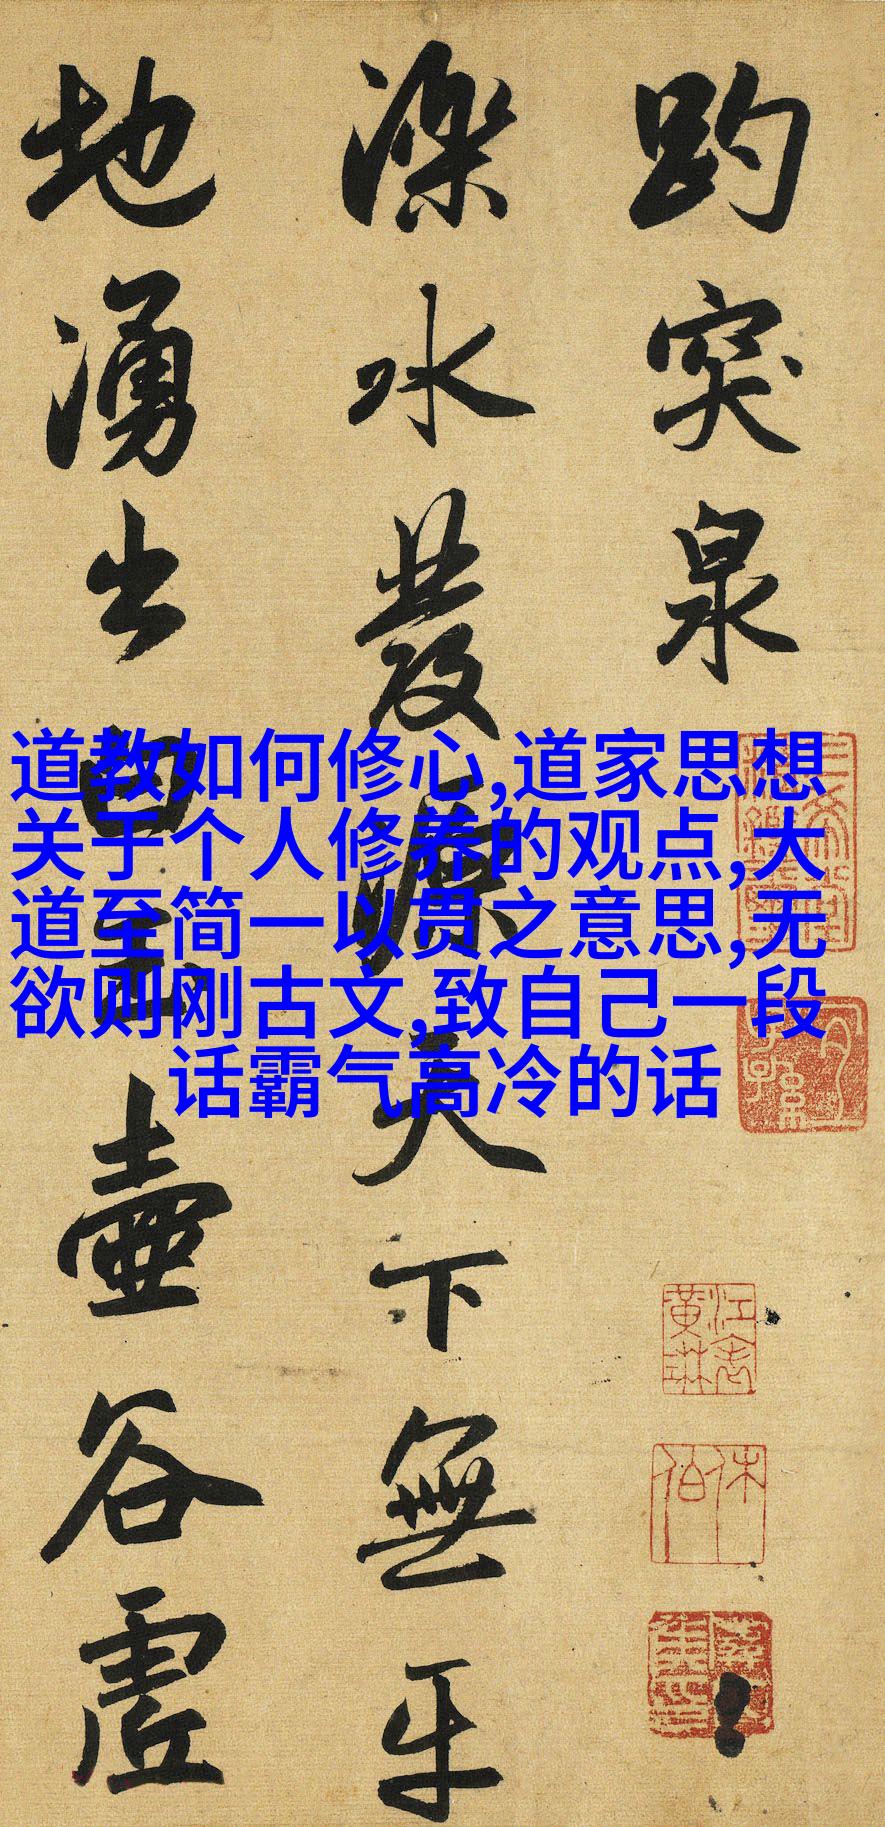 趵突泉
濼水發源天下無平
地湧出白玉壺谷虛
道教如何修心,道家思想
关于个人修养的观点,大
道至简一以贯之意思,无
欲则刚古文,致自己一段
话霸气高冷的话
江表黃琳
休伯